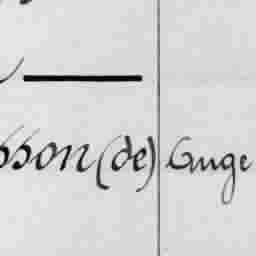 sson (de) Gange